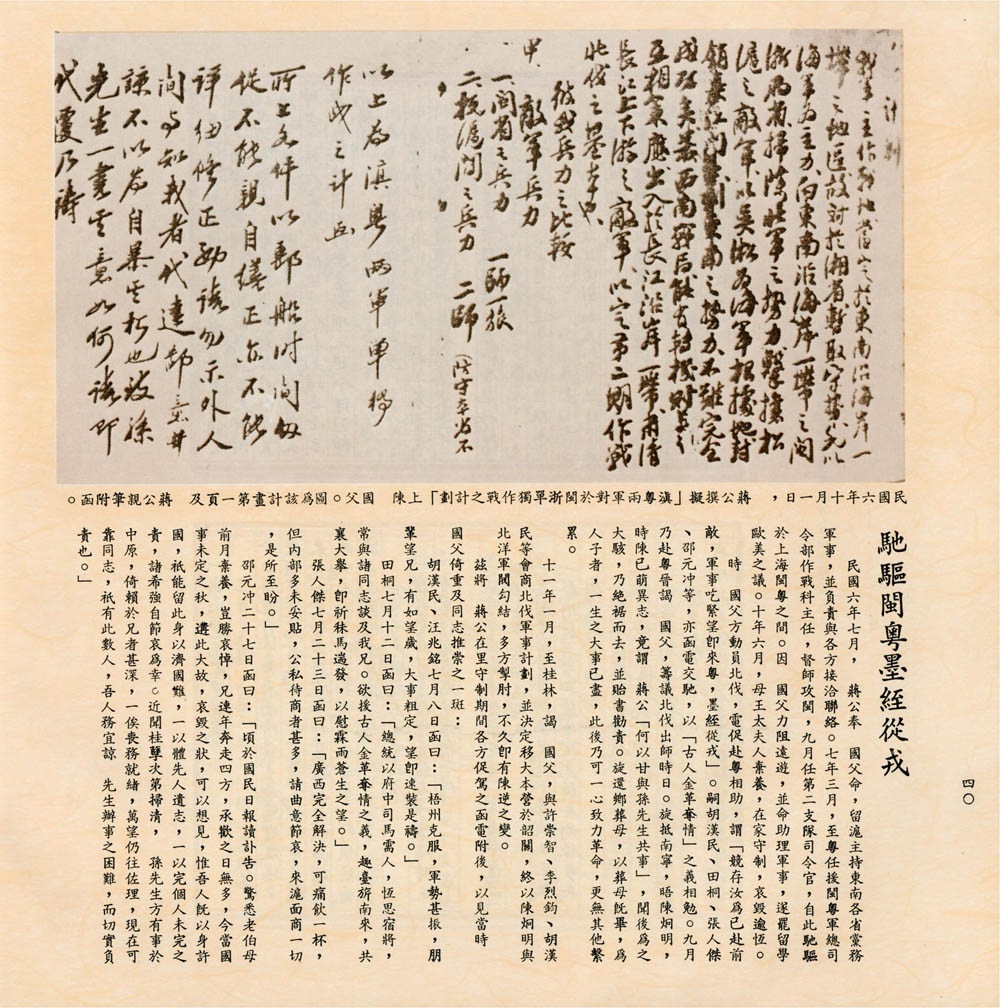 計劃
主作戰地當定於東南沿海岸一
帶之地區故對於湘省暫取守勢先以
海軍為主力向東南沿海岸一帶之閩
浙省掃除北軍之勢力擊攘松
滬之敵軍以吳淞為海軍根據地封
鎖長江東南之勢力不難完全
西南戰局
互相策應出入於長江沿岸一帶肅清
長江上下游之敵軍以定第二期作戰
北伐之基本也
彼我兵力之比較
甲 敵軍兵力
一閩省之兵力 一師一旅
二援滬閩之兵力 二師
以上為滇粵兩軍單獨
作戰之計画
所上文件以郵船時間匆
促不能親自繕正亦不能
詳細修正務請勿示外人
間有知我者代達鄙意並
諒不以為自暴者也
先生一畫意如何請即
代覆乃禱
民國六年十月一日，　蔣公撰擬「滇粵兩軍對於閩浙單獨作戰之計劃」上陳　國父。圖為該計畫第一頁及　蔣公親筆附函。
馳驅閩粵墨絰從戎
四〇
民國六年七月，　蔣公奉　國父命，留滬主持東南各省黨務
軍事，並負責與各方接洽聯絡。七年三月，至粵任援閩粵軍總司
令部作戰科主任，督師攻閩，九月任第二支隊司令官，自此馳驅
於上海閩粵之間。因　國父力阻遠遊，並命助理軍事，遂罷留學
歐美之議。十年六月，母王太夫人棄養，在家守制，哀毀逾恆。
時　國父方動員北伐，電促赴粵相助，謂「競存汝為已赴前
敵，軍事吃緊望即來粵，墨絰從戎」。嗣胡漢民、田桐、張人傑
、邵元冲等，亦函電交馳，以「古人金革奪情」之義相勉。九月
乃赴粵晉謁　國父，籌議北伐出師時日。旋抵南寧，晤陳炯明，
時陳已萌異志，竟謂　蔣公「何以甘與孫先生共事」，聞後為之
大駭，乃絶裾而去，並貽書勸責。旋還鄉葬母，以葬母旣畢，為
人子者，一生之大事已盡，此後乃可一心致力革命，更無其他繫
累。
十一年一月，至桂林，謁　國父，與許崇智、李烈鈞、胡漢
民等會商北伐軍事計劃，並決定移大本營於韶關，終以陳炯明與
北洋軍閥勾結，多方掣肘，不久卽有陳逆之變。
茲將　蔣公在里守制期間各方促駕之函電附後，以見當時
國父倚重及同志推崇之一斑：
胡漢民、汪兆銘七月八日函曰：「梧州克服，軍勢甚振，朋
輩望兄，有如望歲，大事粗定，望卽速裝是禱。」
田桐七月十二日函曰：「總統以府中司馬需人，恆思宿將，
常與諸同志談及我兄。欲後古人金革奪情之義，趣臺旂南來，共
襄大擧，卽祈秣馬遄發，以慰霖雨蒼生之望。」
張人傑七月二十三日函曰：「廣西完全解決，可痛飲一杯，
但內部多未妥貼，公私待商者甚多，請曲意節哀，來滬面商一切
，是所至盼。」
邵元冲二十七日函曰：「頃於國民日報讀訃告。驚悉老伯母
前月棄養，豈勝哀悼，兄連年奔走四方，承歡之日無多，今當國
事未定之秋，遘此大故，哀毀之狀，可以想見，惟吾人旣以身許
國，祇能留此身以濟國難，一以體先人遺志，一以完個人未完之
責，諸希強自節哀爲幸。近聞桂孽次第掃清，　孫先生方有事於
中原，倚賴於兄者甚深，一俟喪務就緒，萬望仍往佐理，現在可
靠同志，祇有此數人，吾人務宜諒　先生辦事之困難，而切實負
責也。」